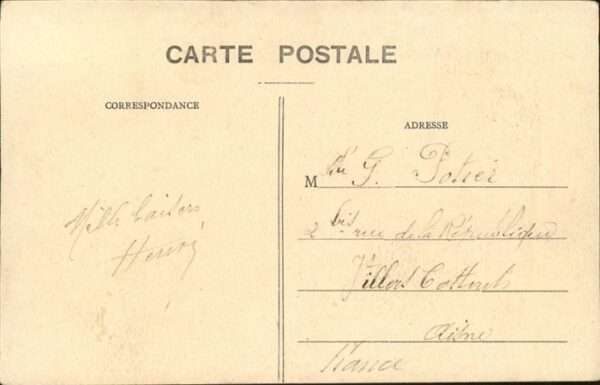 CARTE POSTALE
CORRESPONDANCE
ADRESSE
M G. Potier
2 bis rue de la République
Villers Cotterets
Aisne
France
Mille baisers
Henri